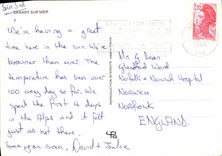 SANARY SUR MER
We're having a great
time here in the sun. We're
browner than ever. The
temperature has been over
100 every day so far. We
spent the first 4 days
in the Alps and it felt
just as hot there.
See you soon, David + Julie
2,10
Mrs G Dean
Ward
Norfolk + Norwich Hospital
NORWICH
Norfolk
ENGLAND.